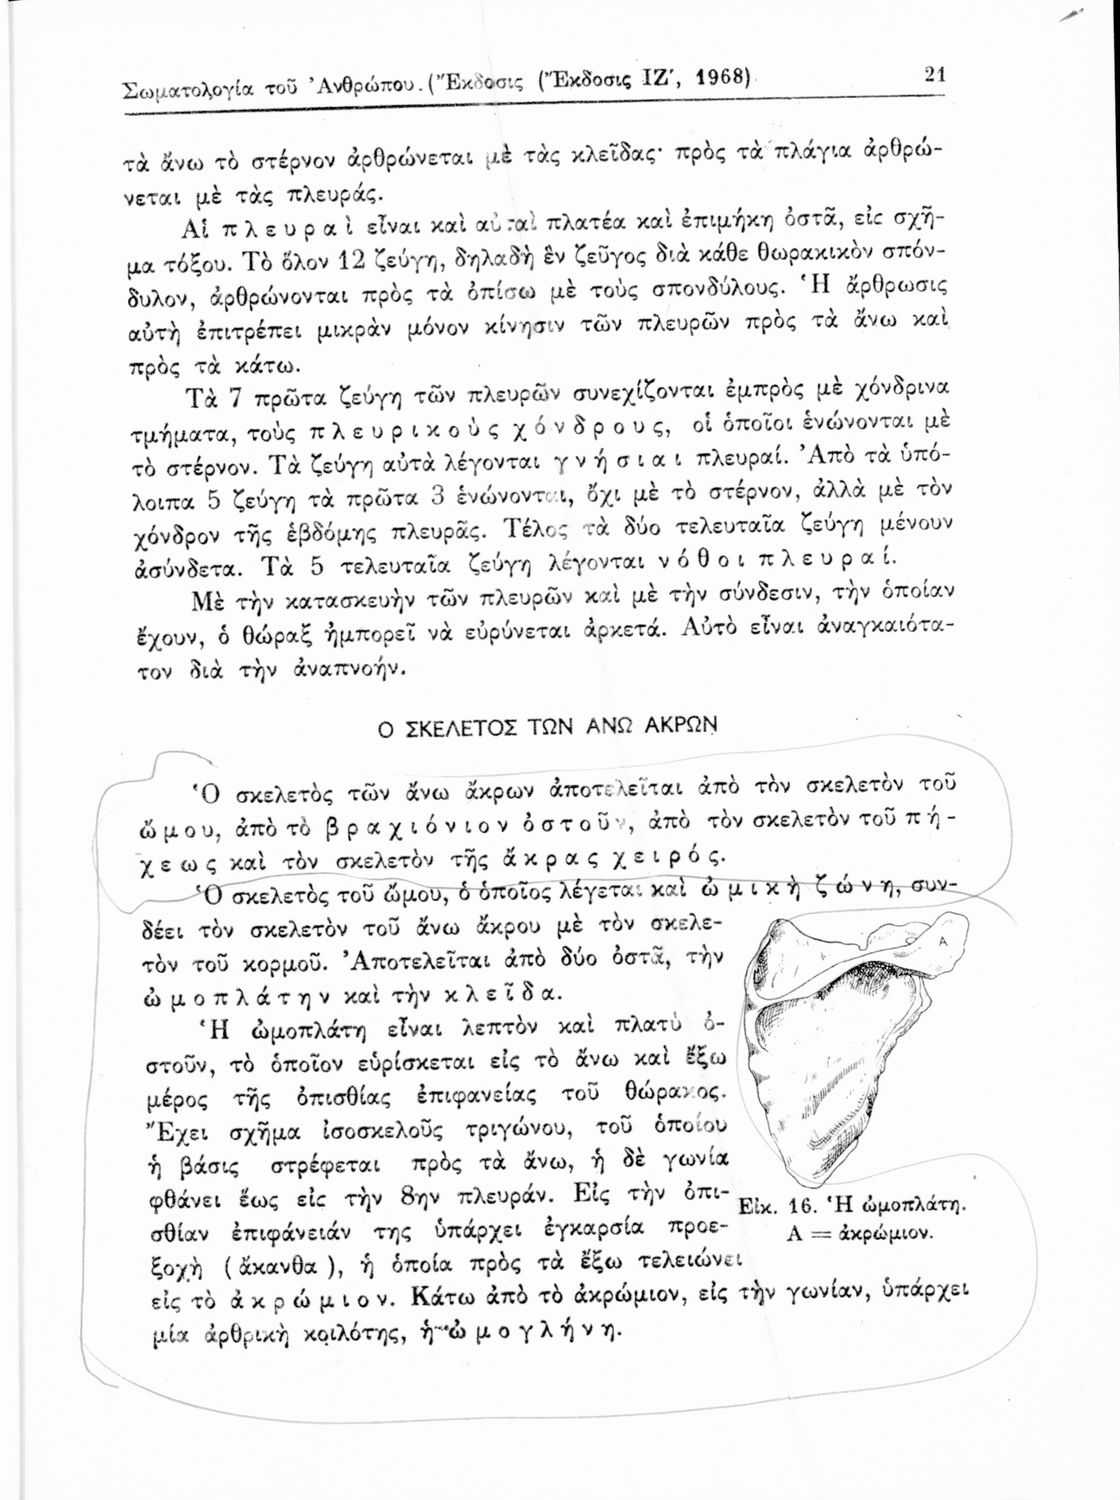 Σωματολογία τοῦ Ἀνθρώπου. (Ἔκδοσις (Ἔκδοσις ΙΖ', 1968) 21
τὰ ἄνω τὸ στέρνον ἀρθρώνεται μὲ τὰς κλεῖδας· πρὸς τὰ πλάγια ἀρθρώ-
νεται μὲ τὰς πλευράς.
Αἱ πλευραὶ εἶναι καὶ αὐταὶ πλατέα καὶ ἐπιμήκη ὀστᾶ, εἰς σχῆ-
μα τόξου. Τὸ ὅλον 12 ζεύγη, δηλαδὴ ἓν ζεῦγος διὰ κάθε θωρακικὸν σπόν-
δυλον, ἀρθρώνονται πρὸς τὰ ὀπίσω μὲ τοὺς σπονδύλους. Ἡ ἄρθρωσις
αὐτὴ ἐπιτρέπει μικρὰν μόνον κίνησιν τῶν πλευρῶν πρὸς τὰ ἄνω καὶ
πρὸς τὰ κάτω.
Τὰ 7 πρῶτα ζεύγη τῶν πλευρῶν συνεχίζονται ἐμπρὸς μὲ χόνδρινα
τμήματα, τοὺς πλευρικοὺς χόνδρους, οἱ ὁποῖοι ἑνώνονται μὲ
τὸ στέρνον. Τὰ ζεύγη αὐτὰ λέγονται γνήσιαι πλευραί. Ἀπὸ τὰ ὑπό-
λοιπα 5 ζεύγη τὰ πρῶτα 3 ἑνώνονται, ὄχι μὲ τὸ στέρνον, ἀλλὰ μὲ τὸν
χόνδρον τῆς ἑβδόμης πλευρᾶς. Τέλος τὰ δύο τελευταῖα ζεύγη μένουν
ἀσύνδετα. Τὰ 5 τελευταῖα ζεύγη λέγονται νόθοι πλευραί.
Μὲ τὴν κατασκευὴν τῶν πλευρῶν καὶ μὲ τὴν σύνδεσιν, τὴν ὁποίαν
ἔχουν, ὁ θώραξ ἠμπορεῖ νὰ εὐρύνεται ἀρκετά. Αὐτὸ εἶναι ἀναγκαιότα-
τον διὰ τὴν ἀναπνοήν.
Ο ΣΚΕΛΕΤΟΣ ΤΩΝ ΑΝΩ ΑΚΡΩΝ
Ὁ σκελετὸς τῶν ἄνω ἄκρων ἀποτελεῖται ἀπὸ τὸν σκελετὸν τοῦ
ὤμου, ἀπὸ τὸ βραχιόνιον ὀστοῦν, ἀπὸ τὸν σκελετὸν τοῦ πή-
χεως καὶ τὸν σκελετὸν τῆς ἄκρας χειρός.
Ὁ σκελετὸς τοῦ ὤμου, ὁ ὁποῖος λέγεται καὶ ὠμικὴ ζώνη, συν-
δέει τὸν σκελετὸν τοῦ ἄνω ἄκρου μὲ τὸν σκελε-
τὸν τοῦ κορμοῦ. Ἀποτελεῖται ἀπὸ δύο ὀστᾶ, τὴν
ὠμοπλάτην καὶ τὴν κλεῖδα.
Ἡ ὠμοπλάτη εἶναι λεπτὸν καὶ πλατὺ ὀ-
στοῦν, τὸ ὁποῖον εὑρίσκεται εἰς τὸ ἄνω καὶ ἔξω
μέρος τῆς ὀπισθίας ἐπιφανείας τοῦ θώρακος.
Ἔχει σχῆμα ἰσοσκελοῦς τριγώνου, τοῦ ὁποίου
ἡ βάσις στρέφεται πρὸς τὰ ἄνω, ἡ δὲ γωνία
φθάνει ἕως εἰς τὴν 8ην πλευράν. Εἰς τὴν ὀπι-
σθίαν ἐπιφάνειάν της ὑπάρχει ἐγκαρσία προε-
ξοχὴ (ἄκανθα), ἡ ὁποία πρὸς τὰ ἔξω τελειώνει
εἰς τὸ ἀκρώμιον. Κάτω ἀπὸ τὸ ἀκρώμιον, εἰς τὴν γωνίαν, ὑπάρχει
μία ἀρθρικὴ κοιλότης, ἡ ὠμογλήνη.
Α
Εἰκ. 16. Ἡ ὠμοπλάτη.
Α = ἀκρώμιον.